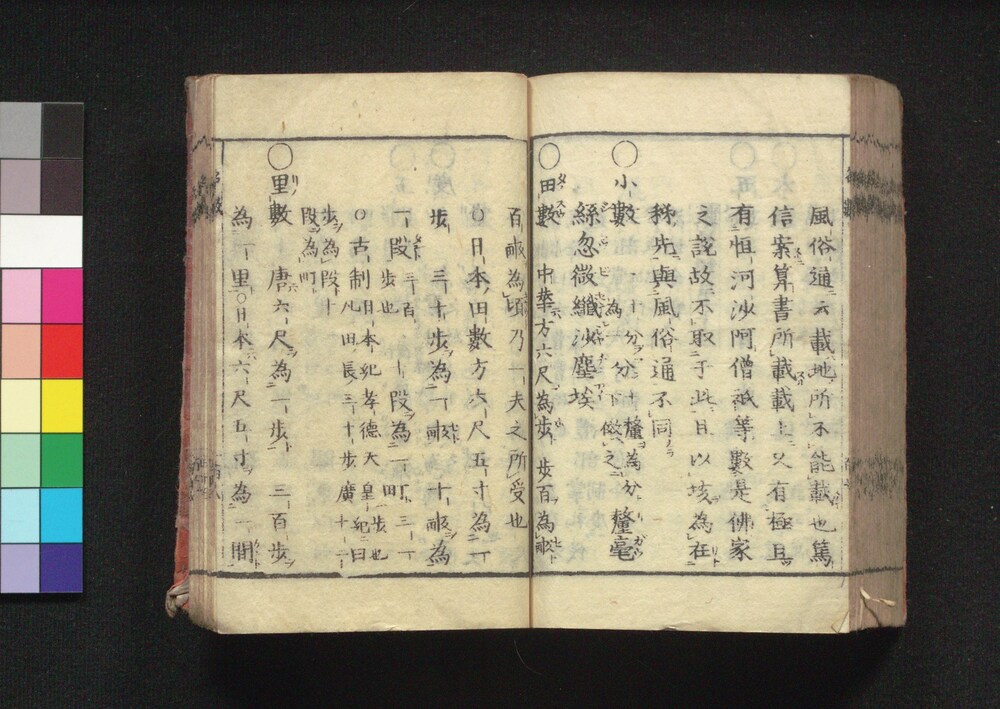 風俗通云載地所不能載也篤
信案算書所載載上又有極且
有恒河沙阿僧祇等數是佛家
之說故不取于此且以垓為在
秭先與風俗通不同
〇小數 十分為分十釐為分釐毫
絲忽微纖沙塵埃
〇田數 中華方六尺為步步百為畝
百畝為頃乃一夫之所受也
〇日本田數方六尺五寸為一
步三十步為一畝十畝為
一段三百步也一段為一町三千步也
〇古制日本紀孝德天皇紀曰凡田長三十步廣十二
步為段十段為町
〇里數 唐六尺為一步三百步
為一里〇日本六尺五寸為一間